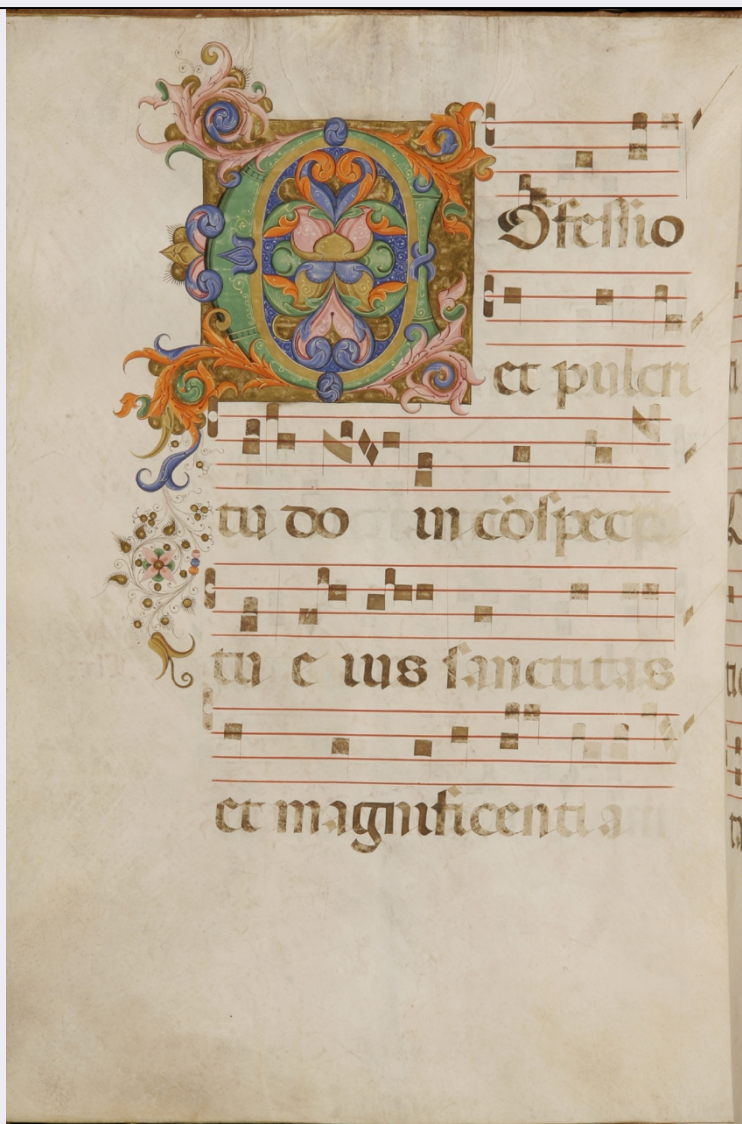 CŌfessio
et pulcri
tu do in cōspec
tu e ius sanctitas
et magnificenti a in